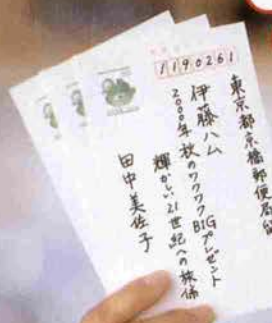 1190261
東京都京橋郵便局留
伊藤ハム
2000年秋のワクワクBIGプレゼント
輝かしい21世紀への旅係
田中美佐子